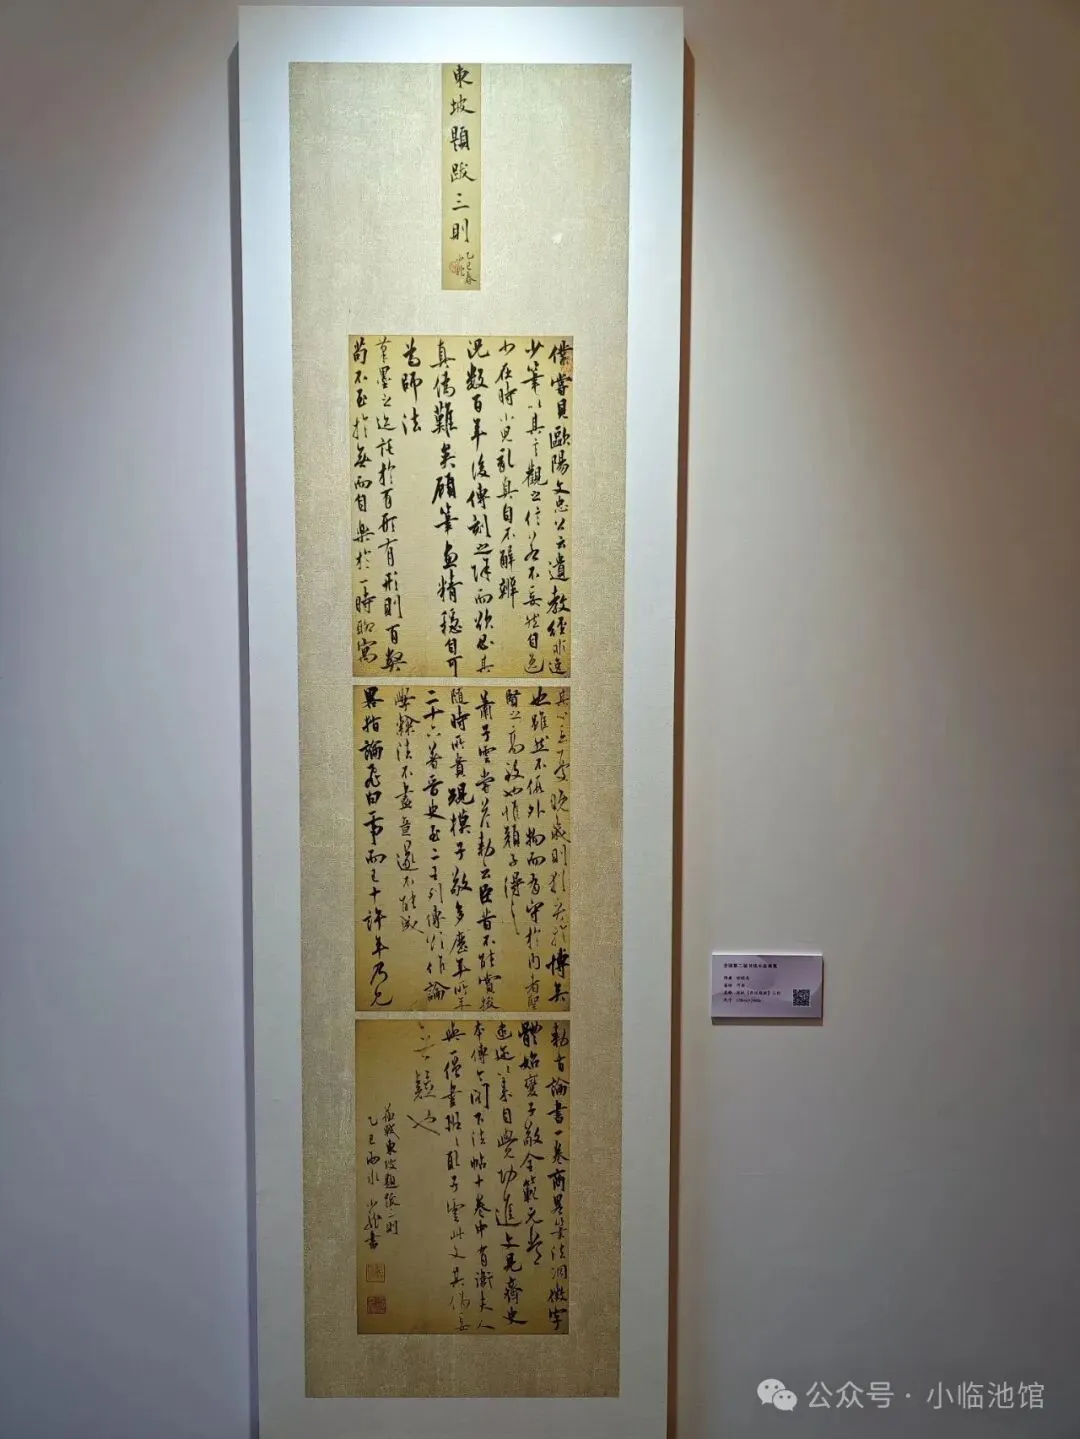 東坡題跋三則
乙巳春
僕嘗見歐陽文忠公云遺教經非逸
少筆以其言觀之信若不妄然自逸
少在時小兒亂真自不解辨
況数百年後傳刻之餘而欲必其
真偽難矣顧筆畫精穩自可
為師法
筆墨之迹託於有形有形則有弊
苟不至於無而自樂於一時聊寓
其心忘憂晚歲則猶賢於博弈
也雖然不假外物而有守於內者聖
賢之高致也惟顏子得之
蕭子雲嘗答勅云臣昔不能賞拔
隨時所貴規模子敬多歷年所年
二十六著晉史至二王列傳欲作論
草隸法不盡意遂不能成
畧指論飛白一事而已十許年乃見
勅旨論書一卷商畧筆法洞徹字
體始變子敬全範元常
逮邇以來自覺功進文見齊史
本傳今閣下法帖十卷中有衛夫人
與一僧書班班取子雲此文其偽妄
無疑也
蘇軾東坡題跋三則
乙巳雨水 書
公众号·小临池馆